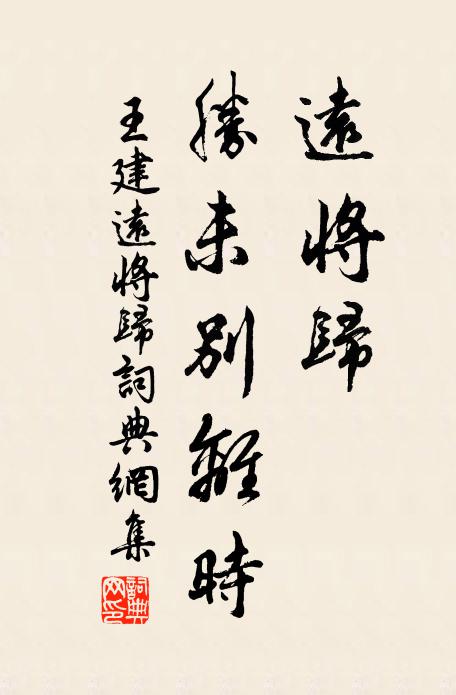 遠將歸
勝未別離時
王建遠將歸詞典網集
詞典網印